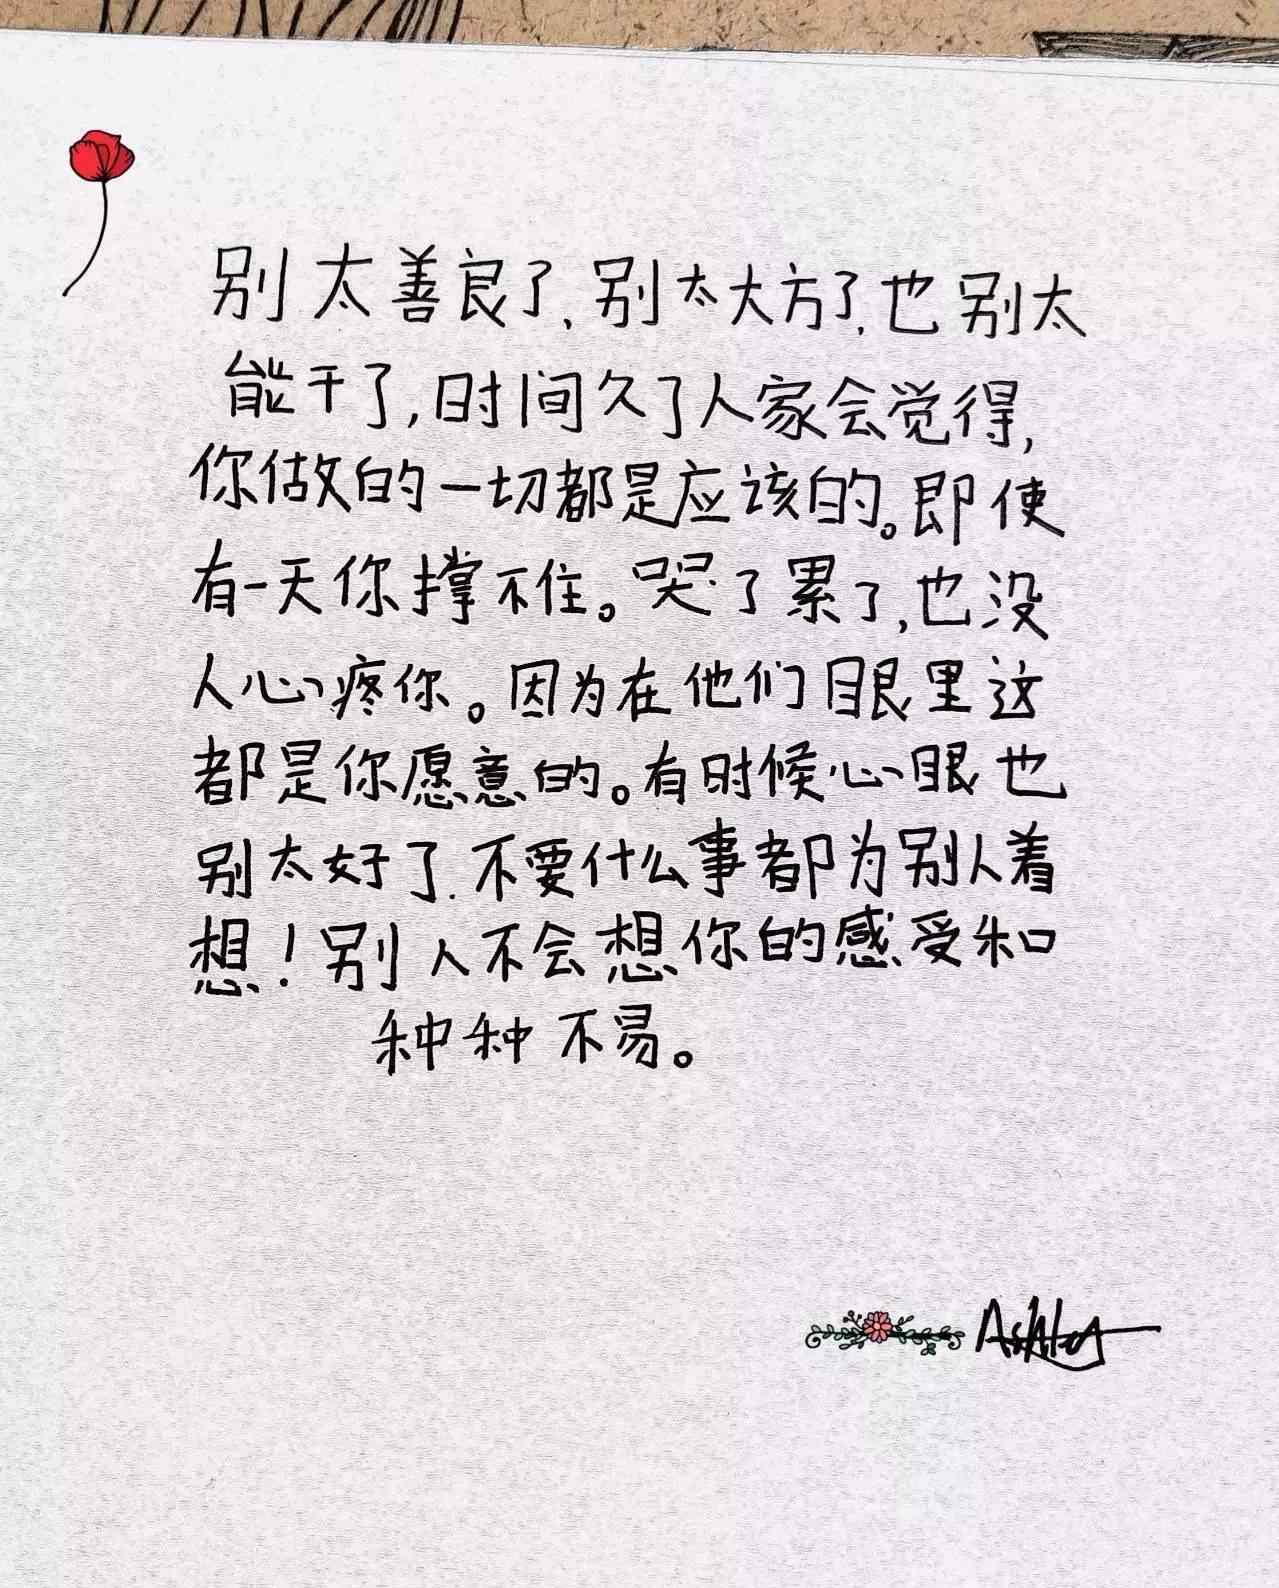 别太善良了,别太大方了,也别太
能干了,时间久了人家会觉得,
你做的一切都是应该的。即使
有一天你撑不住。哭了累了,也没
人心疼你。因为在他们眼里这
都是你愿意的。有时候心眼也
别太好了.不要什么事都为别人着
想!别人不会想你的感受和
种种不易。
Ashley